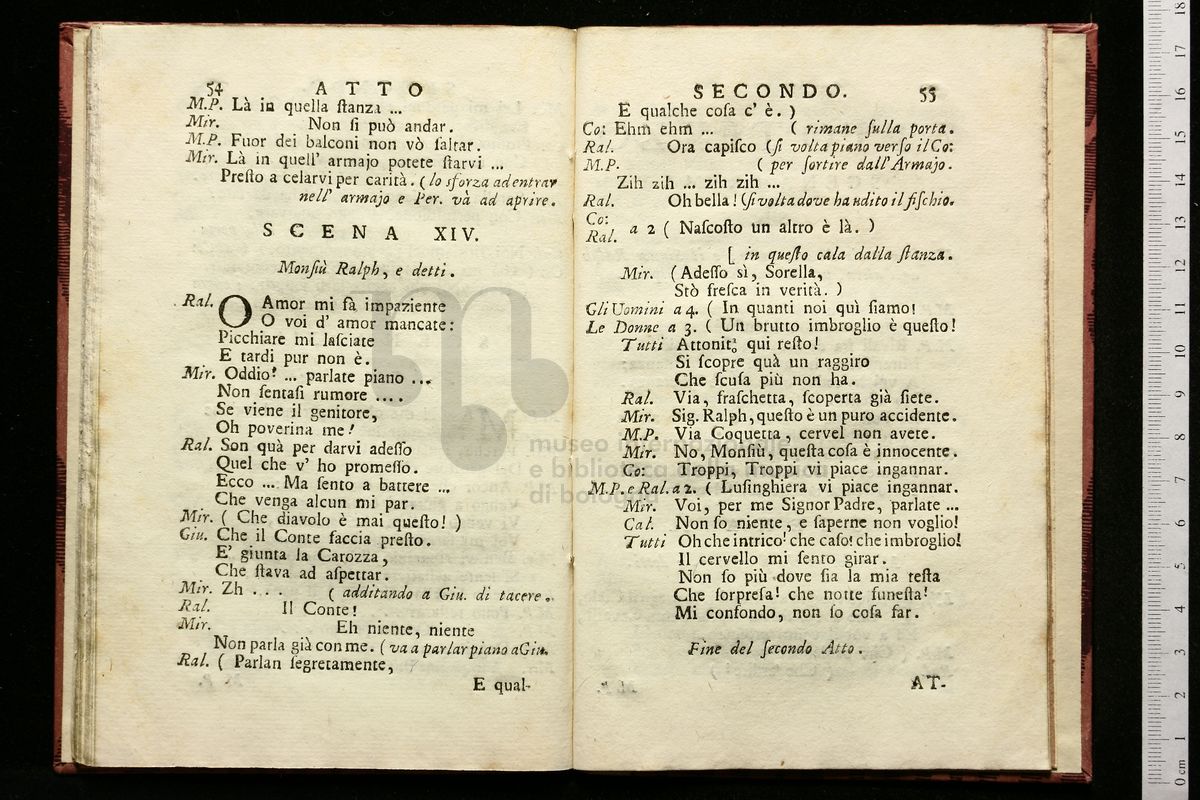 54 ATTO
M.P. Là in quella ſtanza ...
Mir. Non ſi può andar.
M.P. Fuor dei balconi non vò ſaltar.
Mir. Là in quell' armajo potete ſtarvi ...
Preſto a celarvi per carità. (lo sforza ad entrar
nell' armajo e Per. và ad aprire.
SCENA XIV.
Monſiù Ralph, e detti.
Ral. O Amor mi fà impaziente
O voi d' amor mancate:
Picchiare mi laſciate
E tardi pur non è.
Mir. Oddio! ... parlate piano ...
Non ſentaſi rumore ....
Se viene il genitore,
Oh poverina me!
Ral. Son quà per darvi adeſſo
Quel che v' ho promeſſo.
Ecco ... Ma ſento a battere ...
Che venga alcun mi par.
Mir. ( Che diavolo è mai queſto! )
Giu. Che il Conte faccia preſto.
E' giunta la Carozza,
Che ſtava ad aſpettar.
Mir. Zh . . . ( additando a Giu. di tacere.
Ral. Il Conte!
Mir. Eh niente, niente
Non parla già con me. (va a parlar piano a Giu.
Ral. ( Parlan ſegretamente,
E qual-
SECONDO. 55
E qualche coſa c' è. )
Co: Ehm ehm ... ( rimane ſulla porta.
Ral. Ora capiſco (ſi volta piano verſo il Co:
M.P. ( per ſortire dall' Armajo.
Zih zih ... zih zih ...
Ral. Oh bella! (ſi volta dove ha udito il fiſchio.
Co:
Ral. a 2 ( Naſcoſto un altro è là. )
[ in queſto cala dalla ſtanza.
Mir. (Adeſſo sì, Sorella,
Stò freſca in verità. )
Gli Uomini a 4. ( In quanti noi quì ſiamo!
Le Donne a 3. ( Un brutto imbroglio è queſto!
Tutti Attonit qui reſto!
Si ſcopre quà un raggiro
Che ſcuſa più non ha.
Ral. Via, fraſchetta, ſcoperta già ſiete.
Mir. Sig. Ralph, queſto è un puro accidente.
M.P. Via Coquetta, cervel non avete.
Mir. No, Monſiù, queſta coſa è innocente.
Co: Troppi, Troppi vi piace ingannar.
M.P. e Ral. a 2. ( Luſinghiera vi piace ingannar.
Mir. Voi, per me Signor Padre, parlate ...
Cal. Non ſo niente, e ſaperne non voglio!
Tutti Oh che intrico! che caſo! che imbroglio!
Il cervello mi ſento girar.
Non ſo più dove ſia la mia teſta
Che ſorpreſa! che notte funeſta!
Mi confondo, non ſo coſa far.
Fine del ſecondo Atto.
AT-
museo internazionale
e biblioteca della musica
di bologna
0 cm 1 2 3 4 5 6 7 8 9 10 11 12 13 14 15 16 17 18